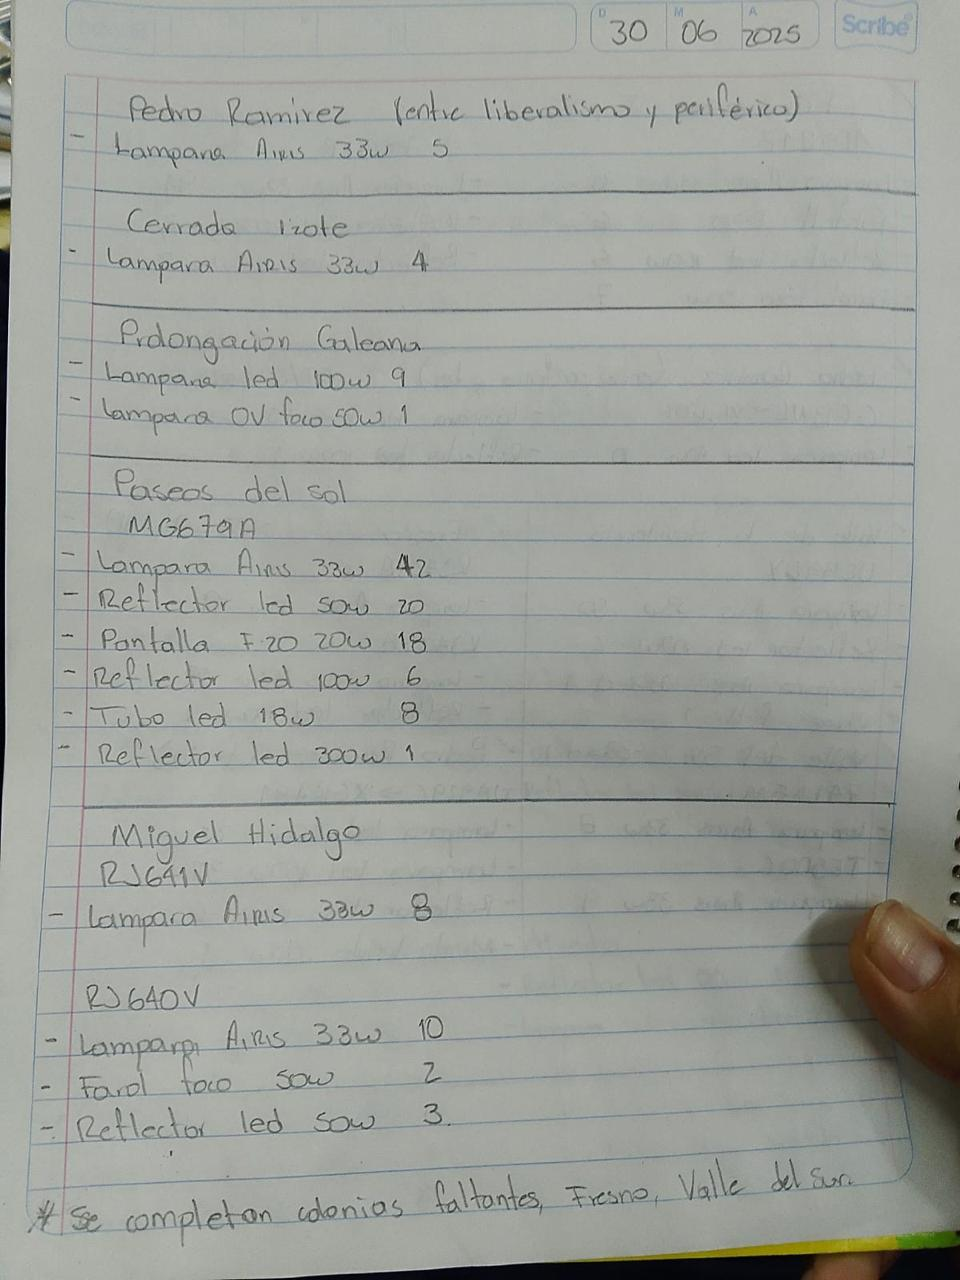 D M A
30 06 2025
Scribe
Pedro Ramirez (entre liberalismo y periférico)
- Lampara Airis 33w 5
Cerrada izote
- Lampara Airis 33w 4
Prolongación Galeana
- Lampara led 100w 9
- Lampara OV foco 50w 1
Paseos del sol
MG679A
- Lampara Airis 33w 42
- Reflector led 50w 20
- Pantalla F20 20w 18
- Reflector led 100w 6
- Tubo led 18w 8
- Reflector led 300w 1
Miguel Hidalgo
RJ641V
- Lampara Airis 33w 8
RJ640V
- Lampara Airis 33w 10
- Farol foco 50w 2
- Reflector led 50w 3.
* Se completan colonias faltantes, Fresno, Valle del Sur.